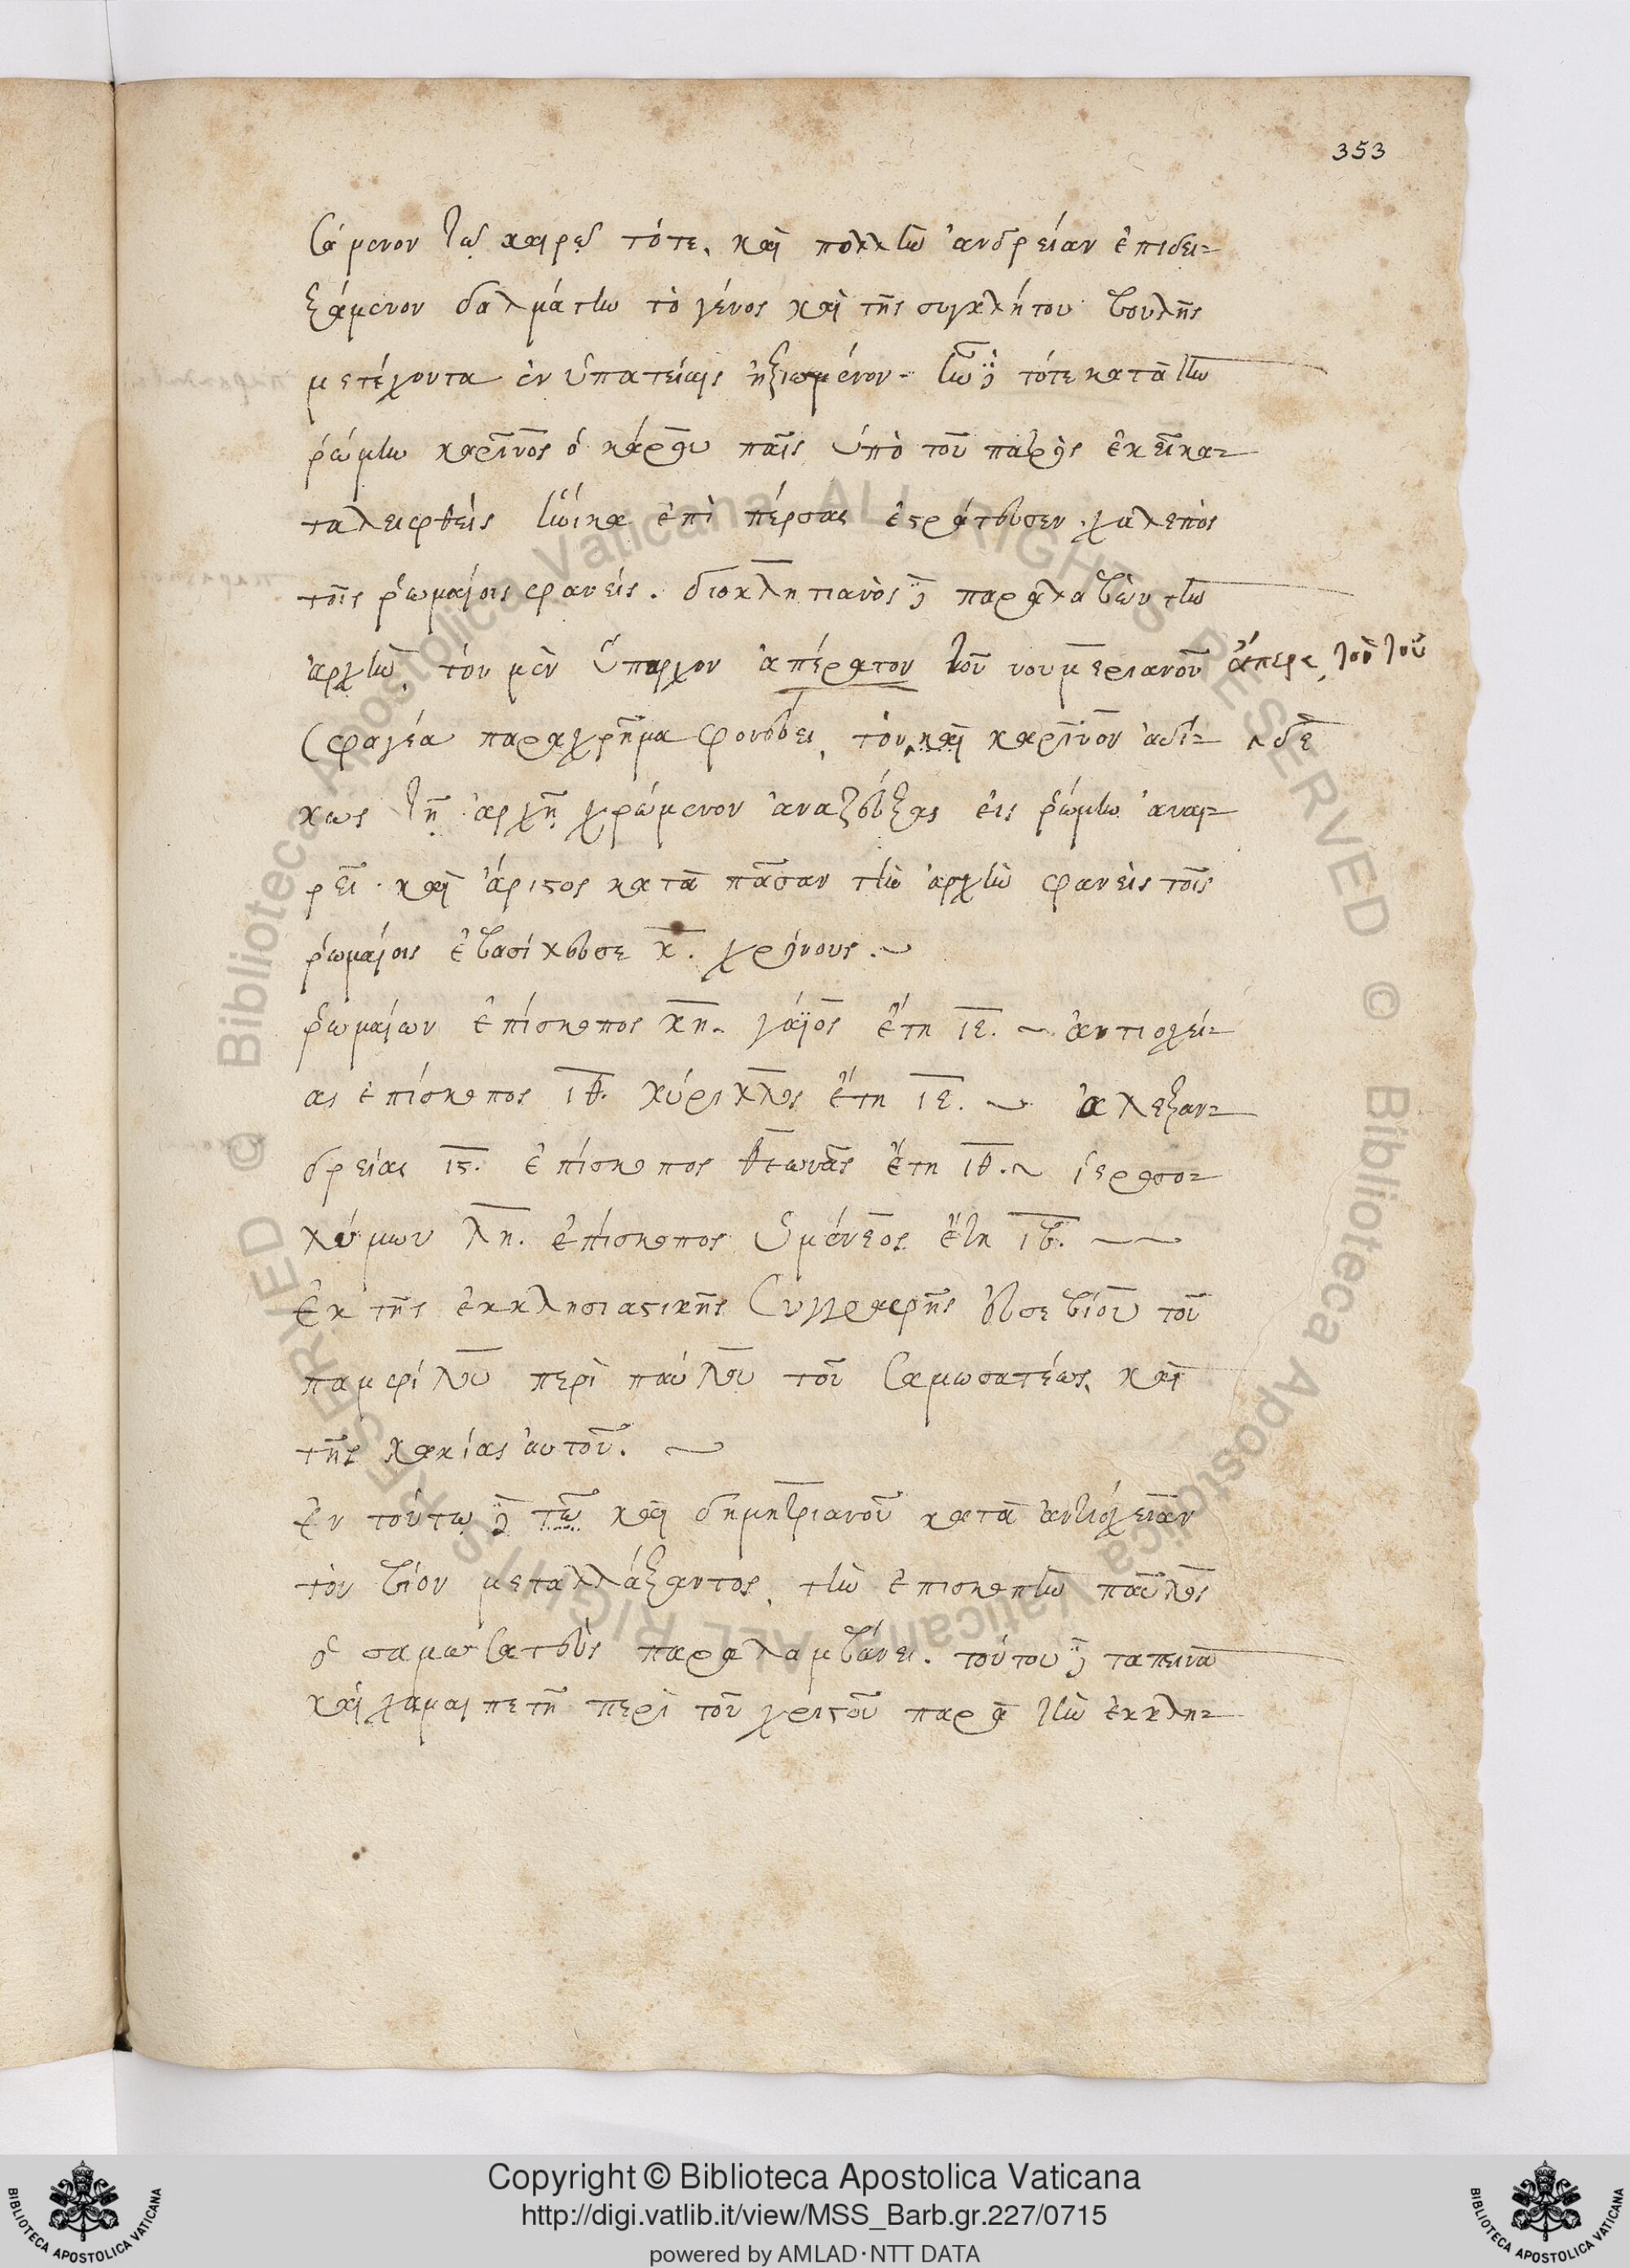 353
σάμενον τῷ καιρῷ τότε, καὶ πολλὴν ἀνδρείαν ἐπιδει-
ξάμενον δαλμάτην τὸ γένος καὶ τῆς συγκλήτου βουλῆς
μετέχοντα ἐν ὑπατείαις ἠξιωμένον. ἦν δὲ τότε κατὰ τὴν
ῥώμην καρῖνος ὁ κάρου παῖς ὑπὸ τοῦ πατρὸς ἐκεῖ κα-
ταλειφθεὶς ἡνίκα ἐπὶ πέρσας ἐστράτευσεν. χαλεπὸς
τοῖς ῥωμαίοις φανείς. διοκλητιανὸς δὲ παραλαβὼν τὴν
ἀρχὴν, τὸν μὲν ὕπαρχον ἀπέρατον τοῦ νουμεριανοῦ ἄπερα, τὸν τοῦ
σφαγέα παραχρῆμα φονεύει, τὸν καὶ καρῖνον ἀδί- δὲ
κως τῇ ἀρχῇ χρώμενον ἀναζεύξας εἰς ῥώμην ἀναι-
ρεῖ. καὶ ἄριστος κατὰ πᾶσαν τὴν ἀρχὴν φανεὶς τοῖς
ῥωμαίοις ἐβασίλευσε κ. χρόνους.
ῥωμαίων ἐπίσκοπος κη. γάϊος ἔτη ιε. ἀντιοχεί-
ας ἐπίσκοπος ιθ. κύριλλος ἔτη ιε. ἀλεξαν-
δρείας ιϛ. ἐπίσκοπος θεωνᾶς ἔτη ιθ. ἱεροσο-
λύμων λη. ἐπίσκοπος ὑμέναιος ἔτη ιβ.
Ἐκ τῆς ἐκκλησιαστικῆς συγγραφῆς εὐσεβίου τοῦ
παμφίλου περὶ παύλου τοῦ σαμωσατέως, καὶ
τῆς κακίας αὐτοῦ.
Ἐν τούτῳ δὲ τῷ καὶ δημητριανοῦ κατὰ ἀντιόχειαν
τὸν βίον μεταλλάξαντος, τὴν ἐπισκοπὴν παῦλος
ὁ σαμωσατεὺς παραλαμβάνει. τούτου δὲ ταπεινὰ
καὶ χαμαιπετῆ περὶ τοῦ χριστοῦ παρὰ τὴν ἐκκλη-
Copyright © Biblioteca Apostolica Vaticana
http://digi.vatlib.it/view/MSS_Barb.gr.227/0715
powered by AMLAD·NTT DATA
BIBLIOTECA APOSTOLICA VATICANA
BIBLIOTECA APOSTOLICA VATICANA
© Biblioteca Apostolica Vaticana ALL RIGHTS RESERVED © Biblioteca Apostolica Vaticana ALL RIGHTS RESERVED